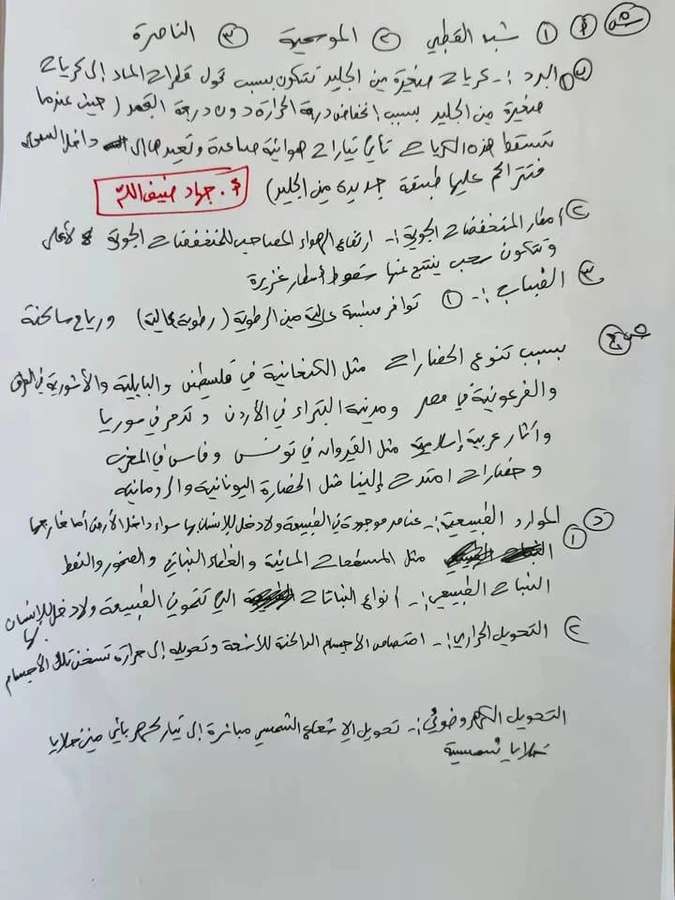 س٤ ٩ ① شبه القطبي ② الموسمية ③ الناصرة
ب ① البرد :- كريات صغيرة من الجليد تتكون بسبب تحول قطرات الماء إلى كريات
صغيرة من الجليد بسبب انخفاض درجة الحرارة دون درجة التجمد (حيث عندما
تتساقط هذه الكريات تأتي تيارات هوائية صاعدة وتعيدها إلى داخل السحابة
فتتراكم عليها طبقة جديدة من الجليد) أ. جهاد ضيف الله
② أمطار المنخفضات الجوية :- ارتفاع الهواء المصاحب للمنخفضات الجوية لأعلى
وتتكون سحب ينتج عنها سقوط أمطار غزيرة
③ الضباب :- ① توافر نسبة عالية من الرطوبة (رطوبة عالية) ورياح ساكنة
ج بسبب تنوع الحضارات مثل الكنعانية في فلسطين والبابلية والآشورية في العراق
والفرعونية في مصر ومدينة البتراء في الأردن وتدمر في سوريا
وآثار عربية إسلامية مثل القيروان في تونس وفاس في المغرب
وحضارات امتدت إلينا مثل الحضارة اليونانية والرومانية
د ① الموارد الطبيعية :- عناصر موجودة في الطبيعة ولا دخل للإنسان بها سواء داخل الأرض أما خارجها
مثل المسطحات المائية والغطاء النباتي والصخور والنفط
النبات الطبيعي :- أنواع النباتات التي تنمو في الطبيعة ولا دخل للإنسان بها
② التحويل الحراري :- امتصاص الأجسام الداكنة للأشعة وتحويله إلى حرارة تسخن تلك الأجسام
التحويل الكهروضوئي :- تحويل الإشعاع الشمسي مباشرة إلى تيار كهربائي خلايا
خلايا شمسية